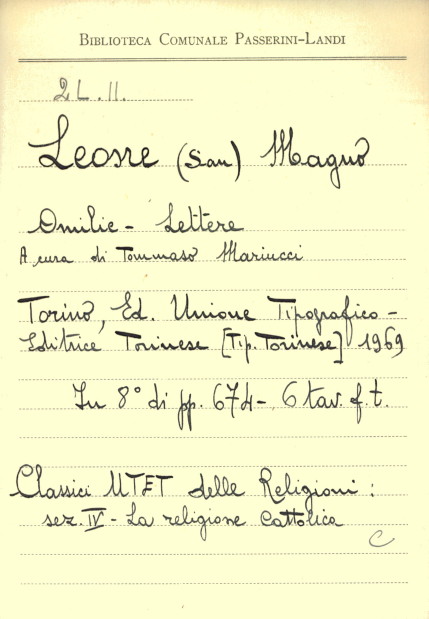 BIBLIOTECA COMUNALE PASSERINI-LANDI
2 L. 11.
Leone (San) Magno
Omilie - Lettere
A cura di Tommaso Mariucci
Torino, Ed. Unione Tipografico-
Editrice Torinese [Tip. Torinese] 1969
In 8° di pp. 674 - 6 tav. f. t.
Classici UTET delle Religioni:
sez. IV - La religione cattolica
C